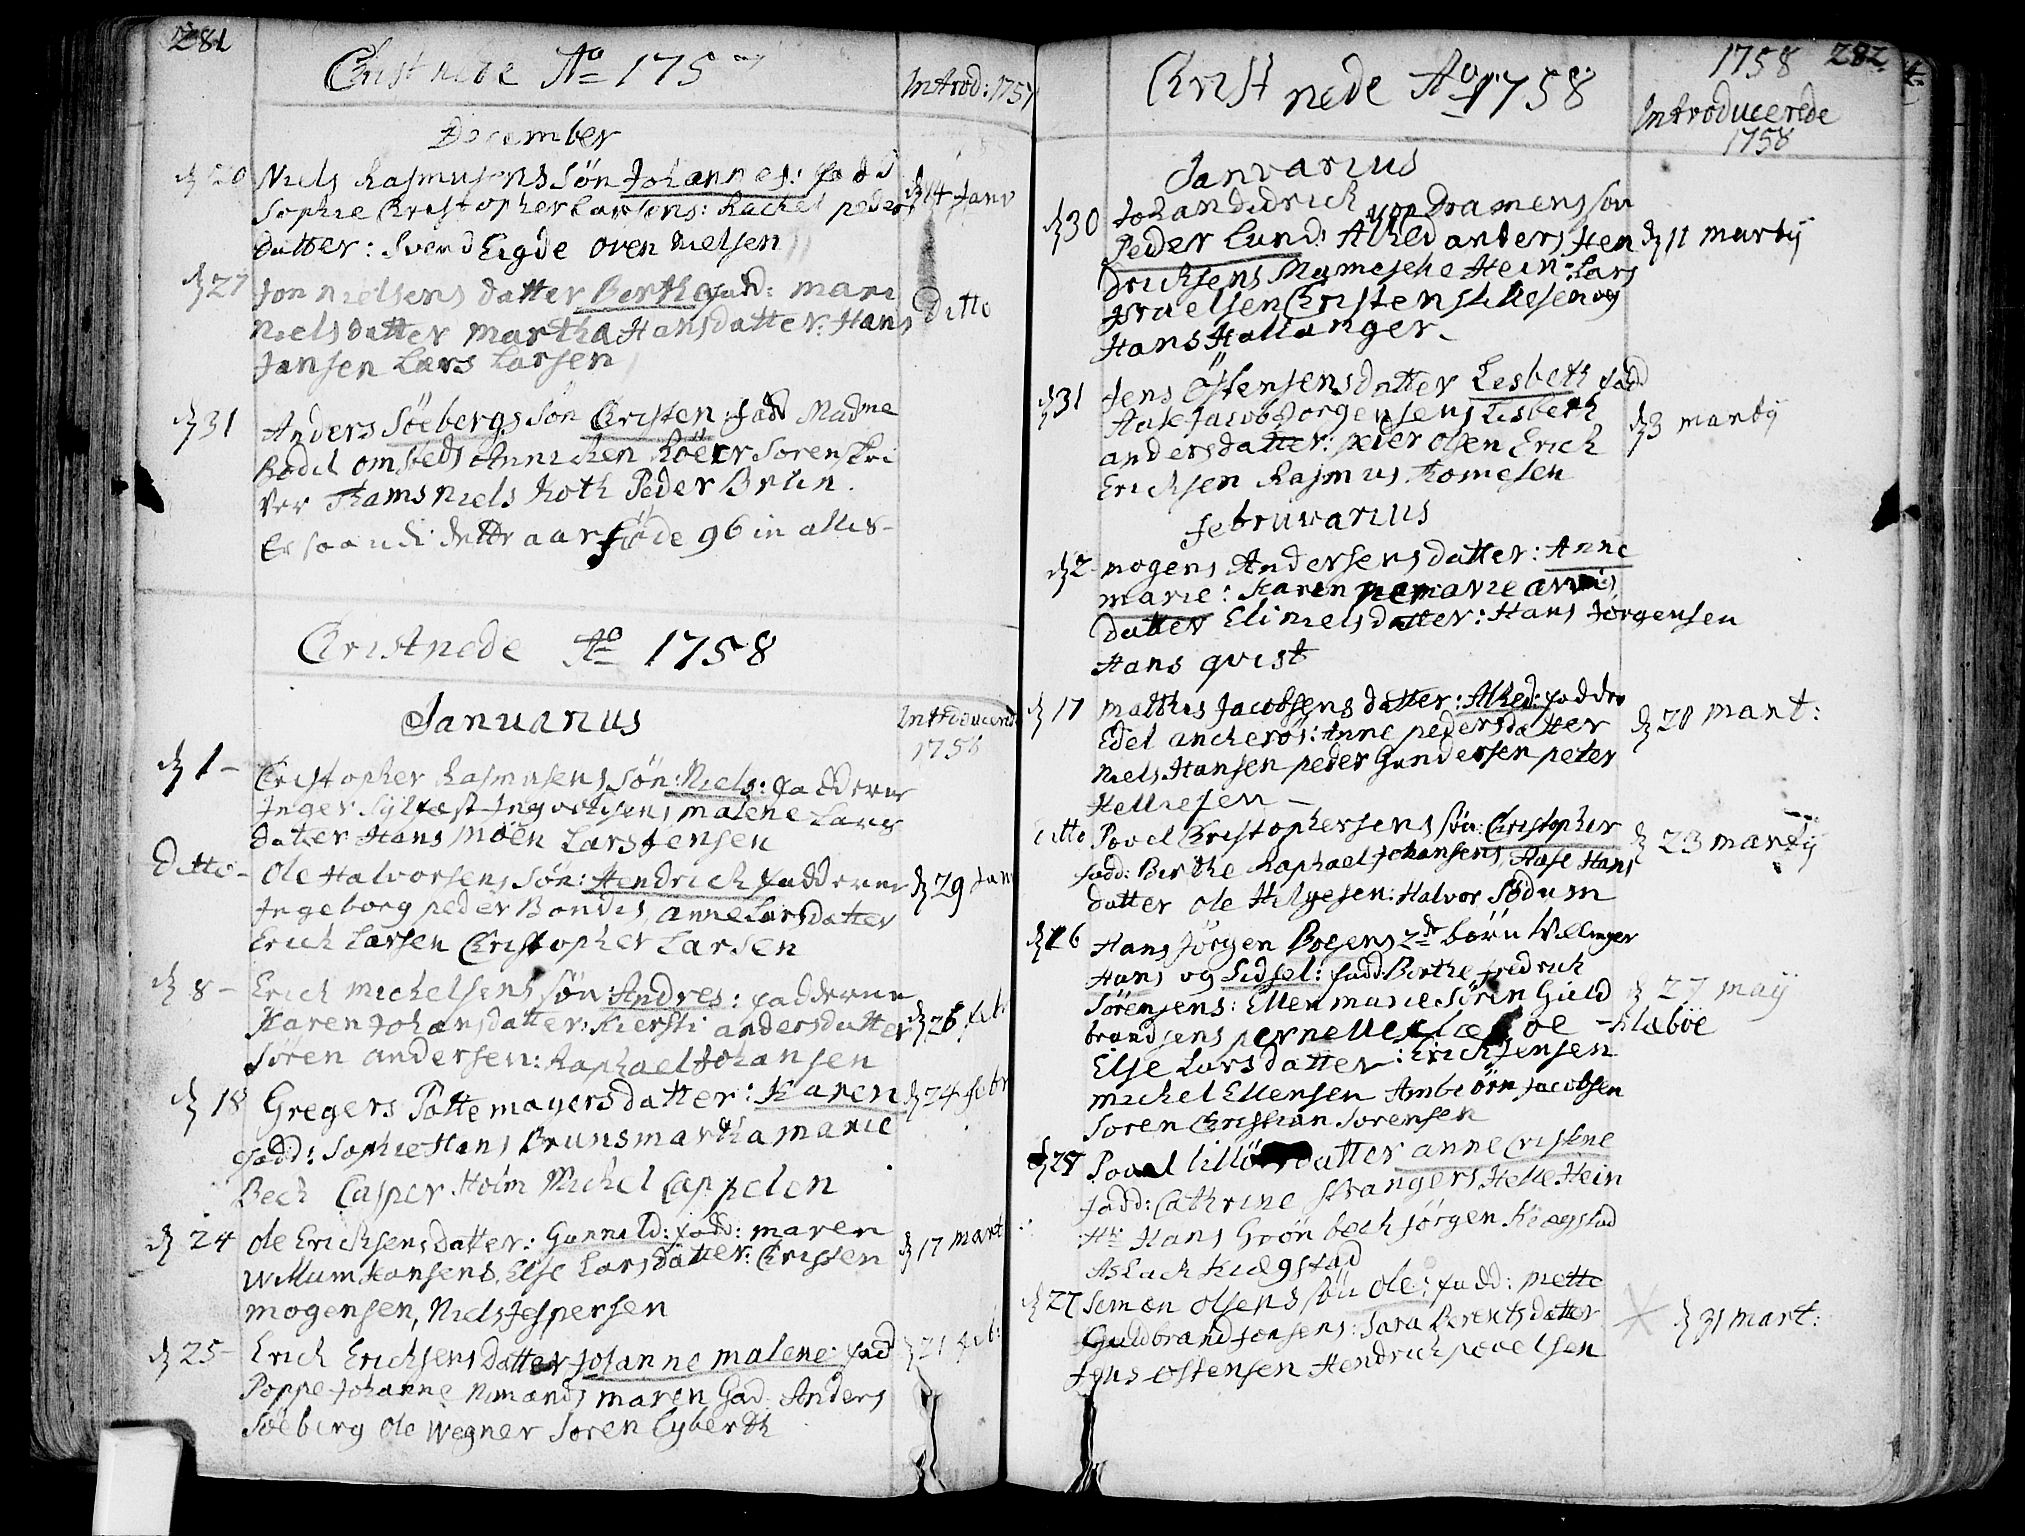 281
Christnede Ao 1757
Introd: 1757
December
d 20 Niels Rasmusens søn Johannes: fadd
d 14 Janv
Sophie Christopher Larsens: Rachel peders
datter: Svend Eigde oven Nielsen
d 27 Jon nielsens datter Bertha fad: mari
Ditto
Niels datter martha Hansdatter: Hans
Jansen Lars Larsen
d 31 Anders Söebergs søn Christen: fadd Madme
Bodil ombeds Annichen Röer Sorenskri
ver Thams Niels Roth Peder Brun.
Er saa udi dette aar føde 96 in alles-
Christnede Ao 1758
Januarius
Introducerede
1758
d 1 - Christopher Rasmusens søn: Niels: fadderne
Inger Sylfæst Ingvoldsens malene Lars
datter Hans Möen Lars Jensen
Ditto - Ole Halvorsens søn: Hendrich fadderne
d 29 Jan
Ingeborg peder Bondes, anne Larsdatter
Erich Larsen Christopher Larsen
d 8 - Erich michelsens søn: Andres: fadderne
d 26 feb
Karen Johansdatter: Kiersti andersdatter
Søren andersen: Raphael Johansen
d 18 Gregers Pottemagers datter: Karen
d 24 febr
fadd: Sophie Hans Bruns martha marie
Bech Casper Holm Michel Cappelen
d 24 ole Erichsens datter: Gunnild: fadd: maren
d 17 mart
Willum Hansens, Else Larsdatter: Christen
mogensen, Niels Jespersen
d 25 - Erich Erichsens datter Johanne malene: fad
d 21 feb:
Poppe Johanne Nimands maren Gad Anders
Söeberg Ole Wegner Soren Cyberth
1758 282
Christnede Ao 1758
Introducerede
1758
Janvarius
d 30 Johan didrich von Dramens søn
Peder Lund: Alhed anders Hen
d 11 martij
drichsens Mamesehe Hein: Lars
Israelsen Christen Nilesen og
Hans Hallanger -
d 31 Jens Östensens datter Lesbeth fadd
Aase Jacob Jorgensens Lisbeth
d 3 martij
andersdatter: peder olsen Erich
Erichsen Rasmus Thomesen
februvarius
d 2 - mogens Andersens datter: Anne
marie: Karen marie
datter Eli nielsdatter: Hans Jørgensen
Hans qvist
d 17 mathis Jacobsens datter: Alhed: faddre
d 20 mart:
Edel ancherøs: Anne pedersdatter
Niels Hansen peder Gundersen peter
Hellresen -
ditto Povel Christophersens søn: Christopher
d 23 martij
fadd: Birthe Raphael Johansens, Aase Hans
datter ole Hilgesen: Halvor Sødum
d 26 Hans Jörgen Bogens 2de börn Willinger
Hans og Sidsel: fadd: Birthe fredrich
Sørensens: Ellen marie Søren Guld
d 27 maij
brandsens pernelle - Klæböe
Else Larsdatter: Erich Jensen
michel Ellensen Ambiörn Jacobsen
Soren Christian Sorensen
d 28 Povel lillö datter anne Cristine
fadd: Cathrine Strangers Helle Hein
Hr Hans Grönbech Jörgen Kiægstad
Aslach Kiægstad
d 27 Simon olsens søn ole: fadd: mette
Guldbrand Jonsens: Sara Berentsdatter
d 31 mart:
Jens Ostensen Hendrich povelsen